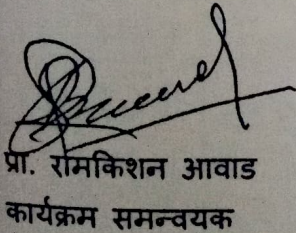 प्रा. रामकिशन आवाड
कार्यक्रम समन्वयक